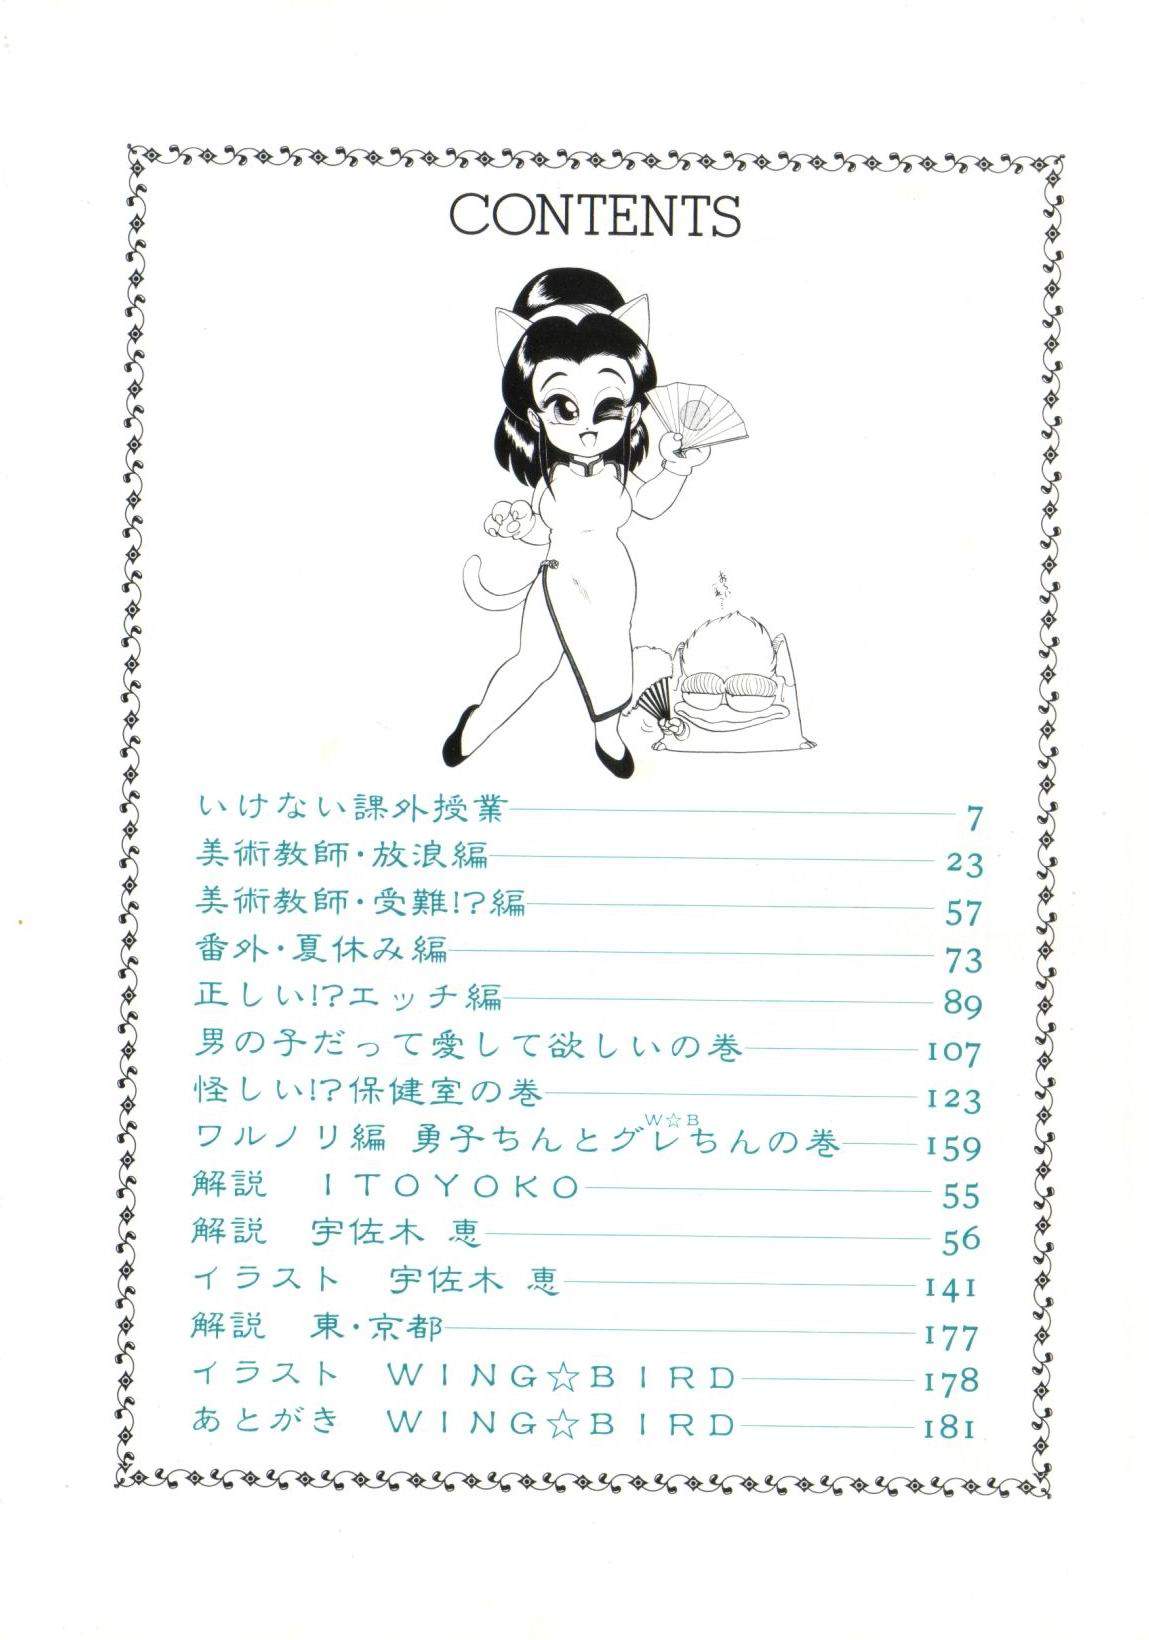 CONTENTS
いけない課外授業 7
美術教師・放浪編 23
美術教師・受難!?編 57
番外・夏休み編 73
正しい!?エッチ編 89
男の子だって愛して欲しいの巻 107
怪しい!?保健室の巻 123
W☆B
ワルノリ編 勇子ちんとグレちんの巻 159
解説 ITOYOKO 55
解説 宇佐木 恵 56
イラスト 宇佐木 恵 141
解説 東・京都 177
イラスト WING☆BIRD 178
あとがき WING☆BIRD 181